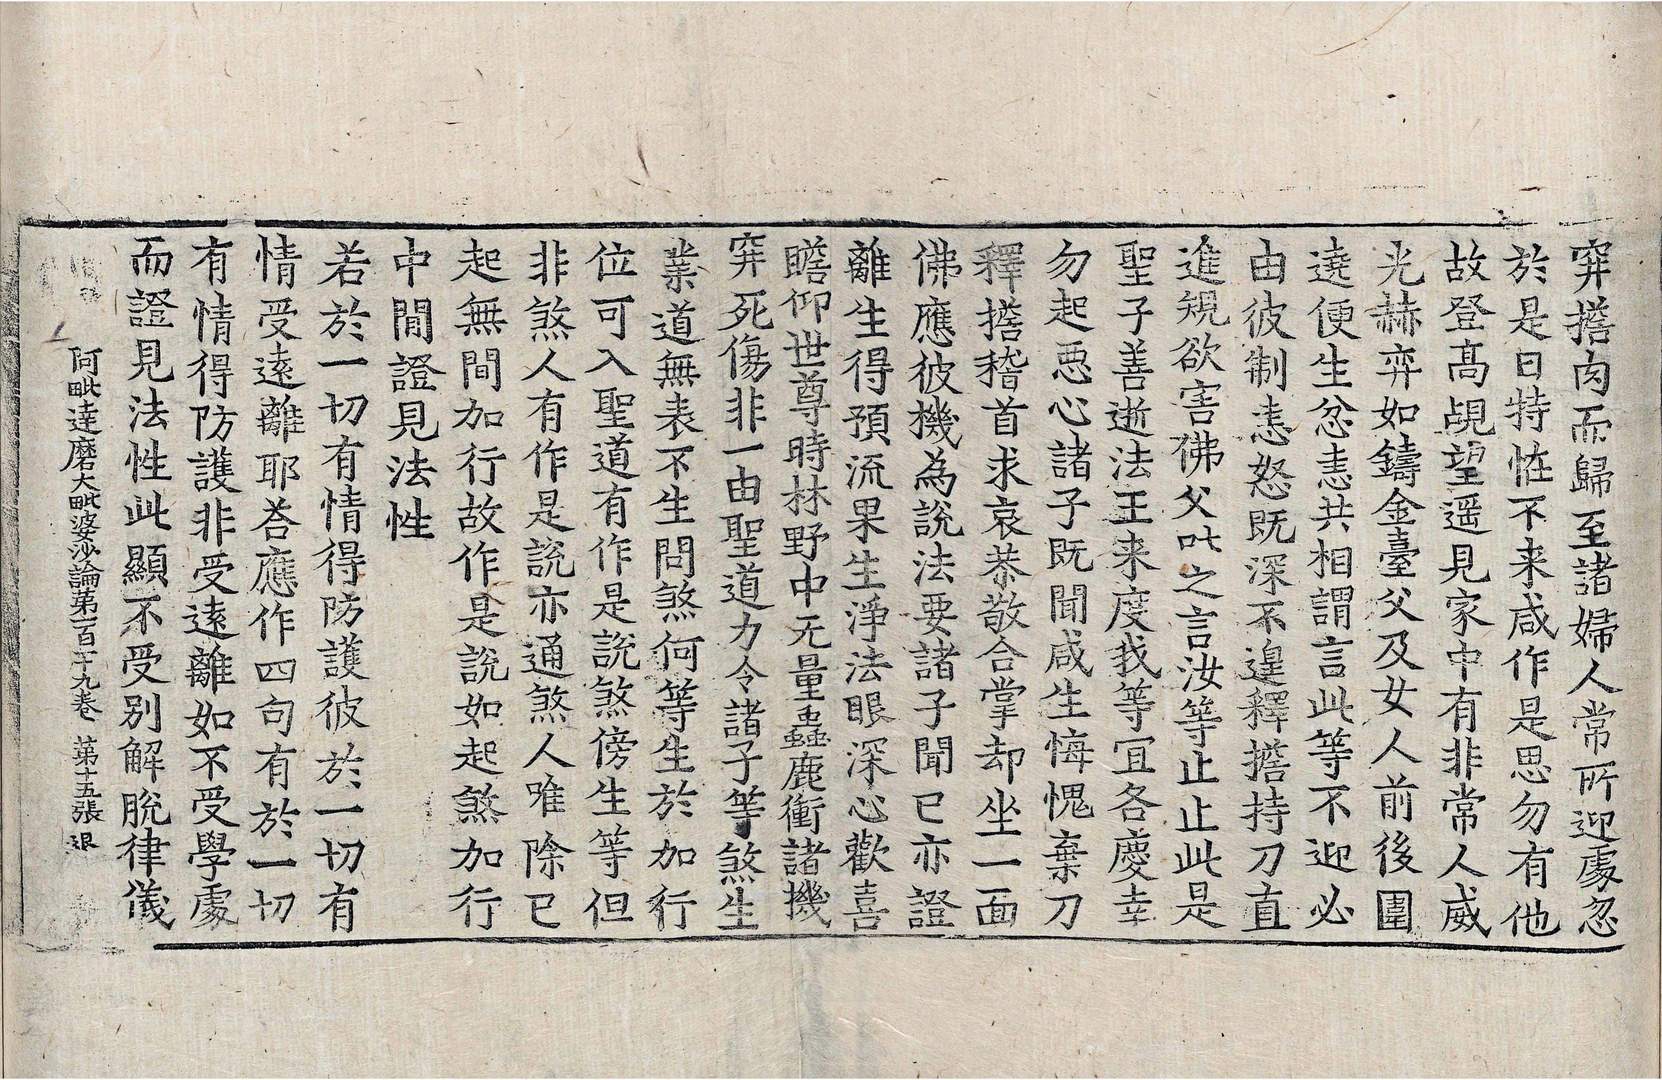 穽擔肉而歸至諸婦人常所迎處忽
於是日特恠不来咸作是思勿有他
故登高覘望遥見家中有非常人威
光赫弈如鑄金臺父及女人前後圍
遶便生忿恚共相謂言此等不迎必
由彼制恚怒既深不遑釋擔持刀直
進規欲害佛父吒之言汝等止止此是
聖子善逝法王来度我等宜各慶幸
勿起惡心諸子既聞咸生悔愧棄刀
釋擔稽首求哀恭敬合掌却坐一面
佛應彼機為説法要諸子聞已亦證
離生得預流果生淨法眼深心歡喜
瞻仰世尊時林野中无量蟲鹿衝諸機
穽死傷非一由聖道力令諸子等煞生
業道無表不生問煞何等生於加行
位可入聖道有作是說煞傍生等但
非煞人有作是說亦通煞人唯除已
起無間加行故作是說如起煞加行
中間證見法性
若於一切有情得防護彼於一切有
情受遠離耶荅應作四句有於一切
有情得防護非受遠離如不受學處
而證見法性此顯不受別解脫律儀
阿毗達磨大毗婆沙論第一百十九卷 第十五張 退